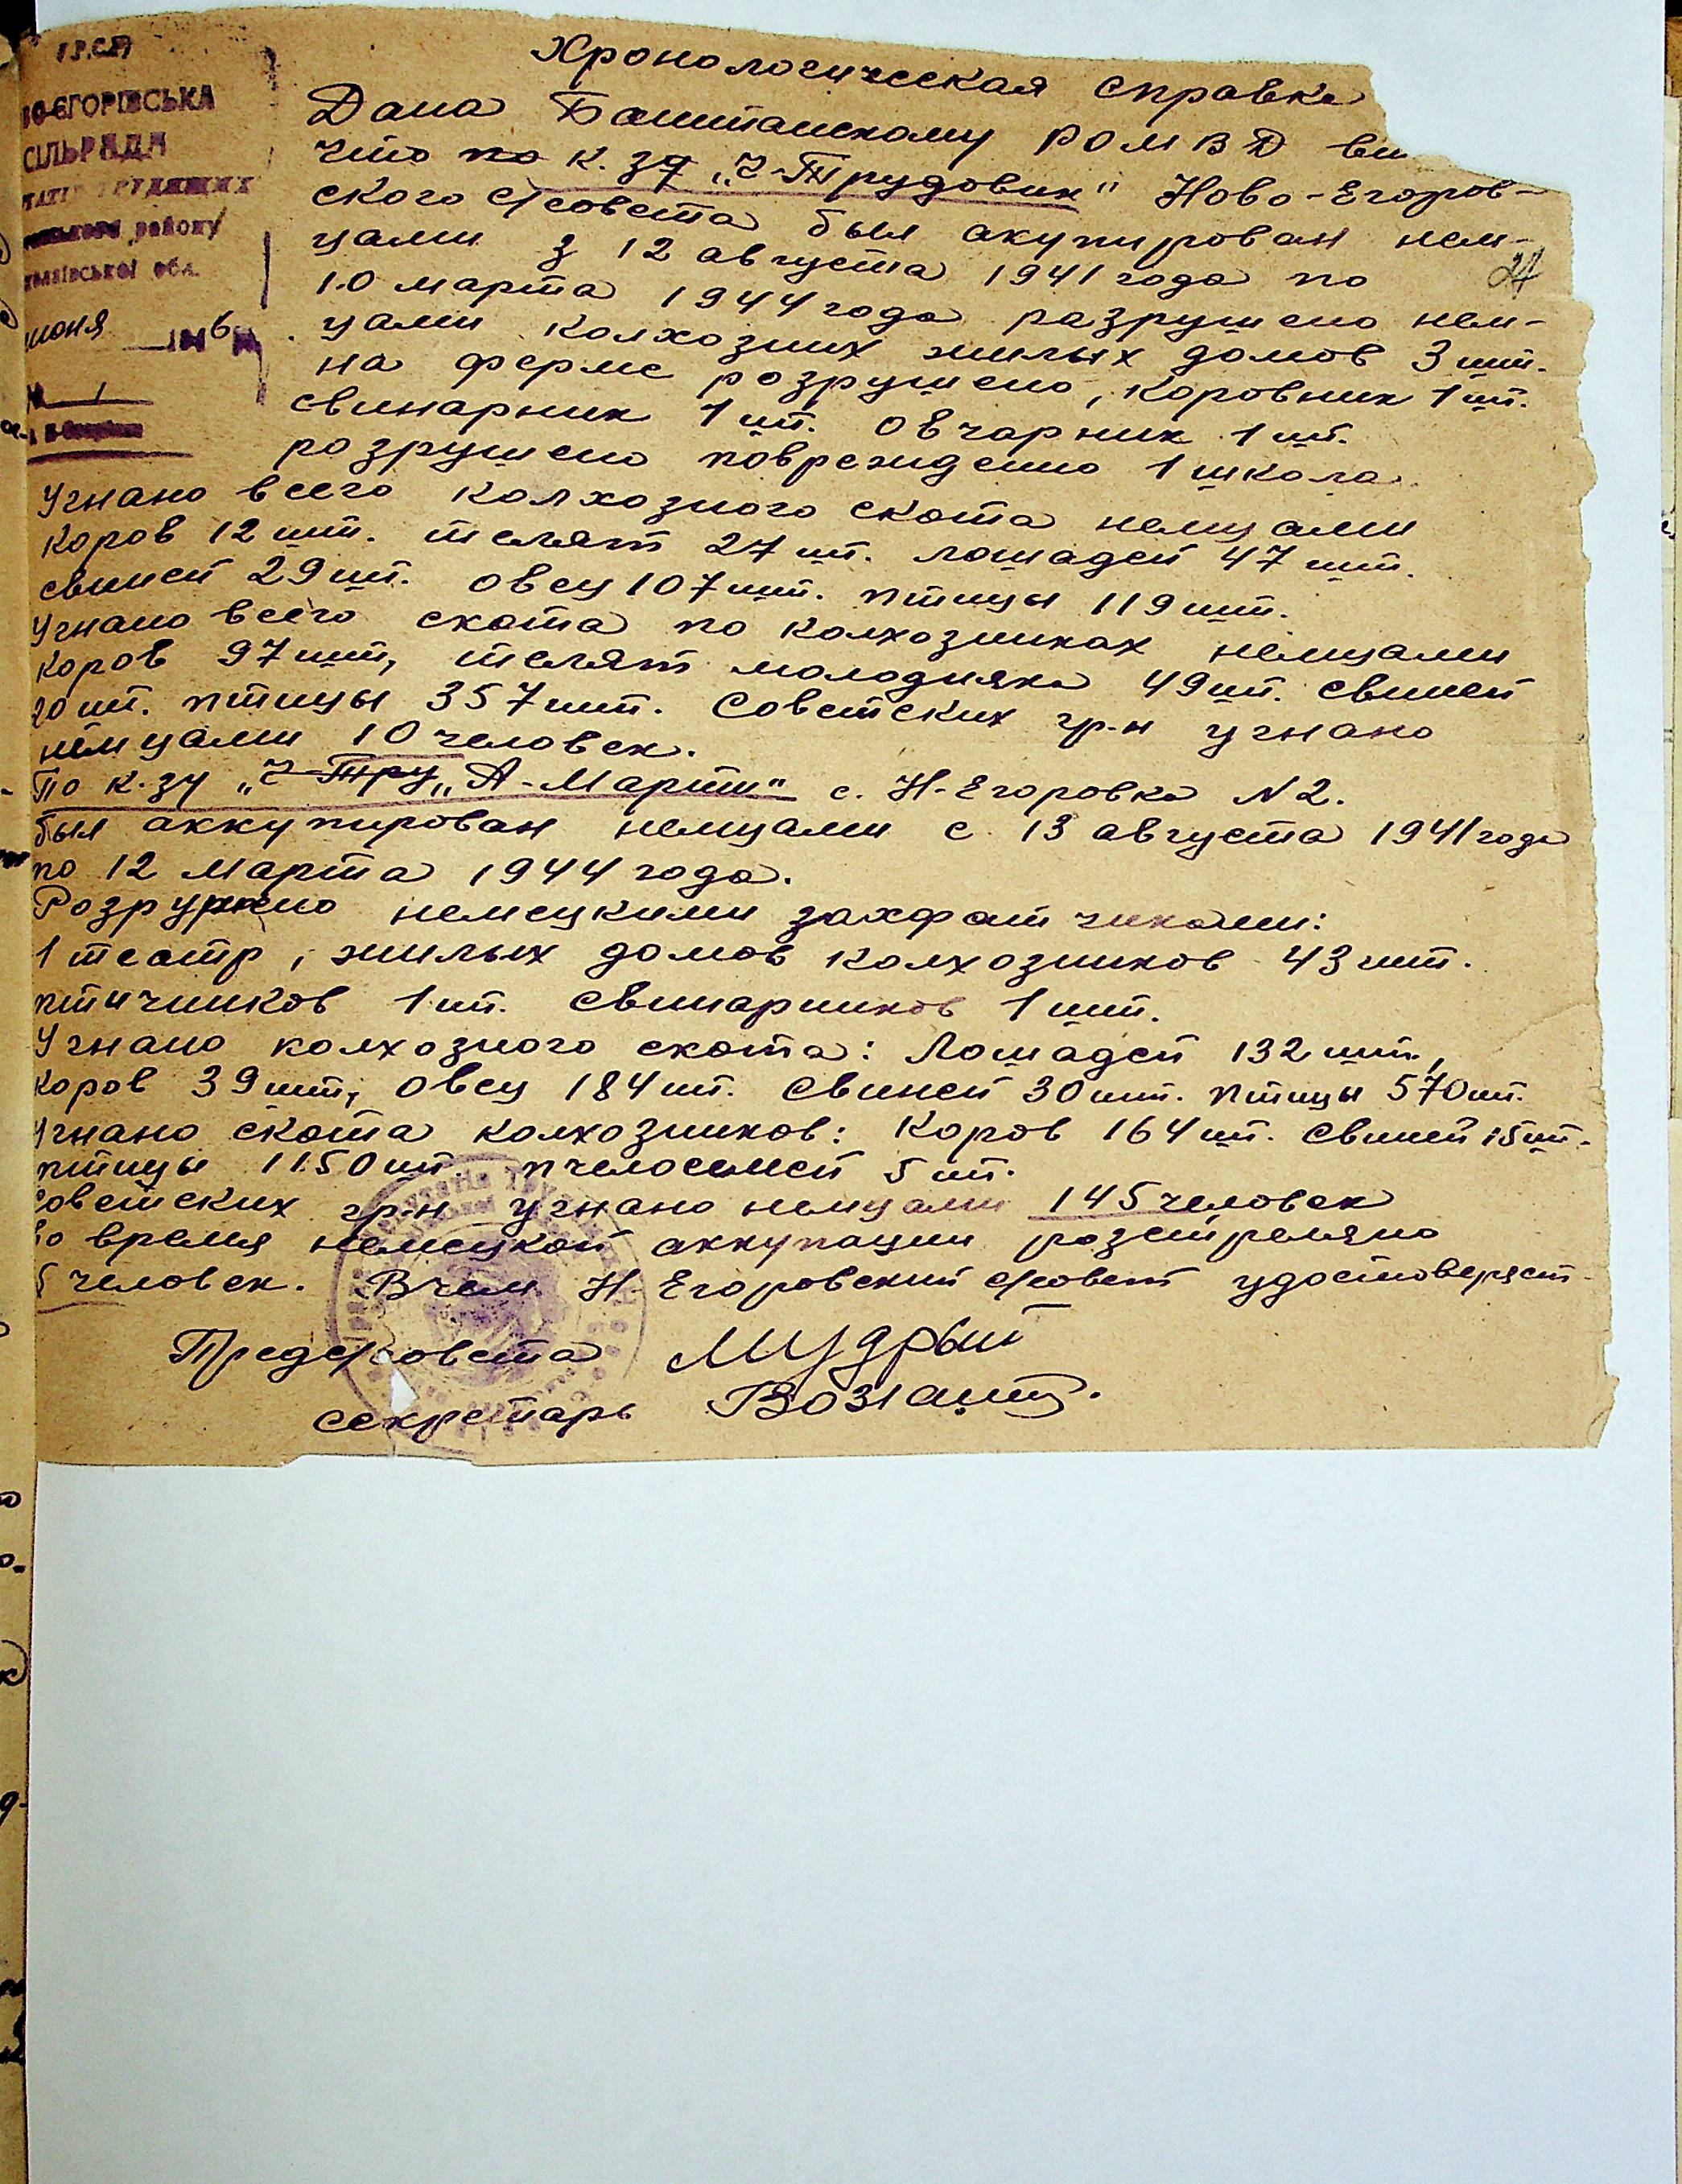 У.Р.С.Р.
ЄГОРІВСЬКА
СІЛЬРАДА
району
обл.
июня 1946
№ 1
24
Хронологическая справка
Дана Баштанскому РОМВД в
что по к.зу „Ч-Трудовик" Ново-Егоров-
ского с/совета был акупирован нем-
цами з 12 августа 1941 года по
10 марта 1944 года разрушено нем-
цами колхозних жилых домов 3 шт.
на ферме розрушено, коровник 1 шт.
свинарник 1 шт. овчарник 1 шт.
розрушено повреждено 1 школа.
Угнано всего колхозного скота немцами
коров 12 шт. телят 27 шт. лошадей 47 шт.
свиней 29 шт. овец 107 шт. птицы 119 шт.
Угнано всего скота по колхозниках немцами
коров 97 шт, телят молодняка 49 шт. свиней
20 шт. птицы 357 шт. Советских гр-н угнано
немцами 10 человек.
По к.зу „Ч-Тру„А-Марти" с. Н-Егоровка N2.
был аккупирован немцами с 13 августа 1941 года
по 12 марта 1944 года.
Розрушено немецкими захфатчиками:
1 театр, жилых домов колхозников 43 шт.
птичников 1 шт. свинарников 1 шт.
Угнано колхозного скота: Лошадей 132 шт,
коров 39 шт, овец 184 шт. свиней 30 шт. птицы 570 шт.
Угнано скота колхозников: Коров 164 шт. свиней 15 шт.
птицы 1150 шт. пчелосемей 5 шт.
Советских гр-н угнано немцами 145 человек
во время немецкой аккупации розстреляно
5 человек. В чем Н-Егоровский с/совет удостоверяет
Пред с/совета Мудрый
секретарь